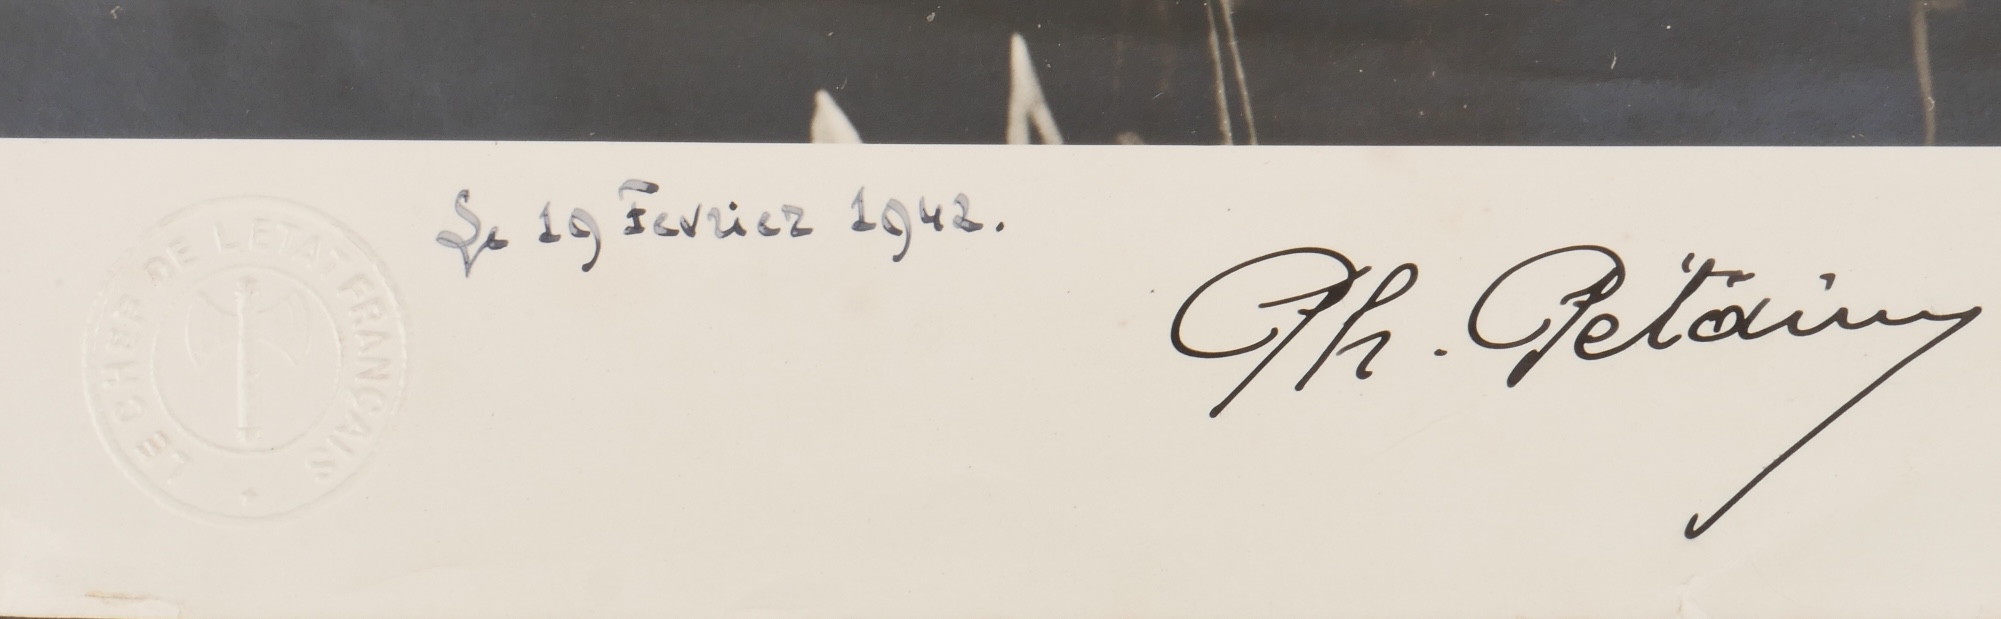 Le 19 Fevrier 1942.
LE CHEF DE L'ETAT FRANÇAIS
Ph. Pétain